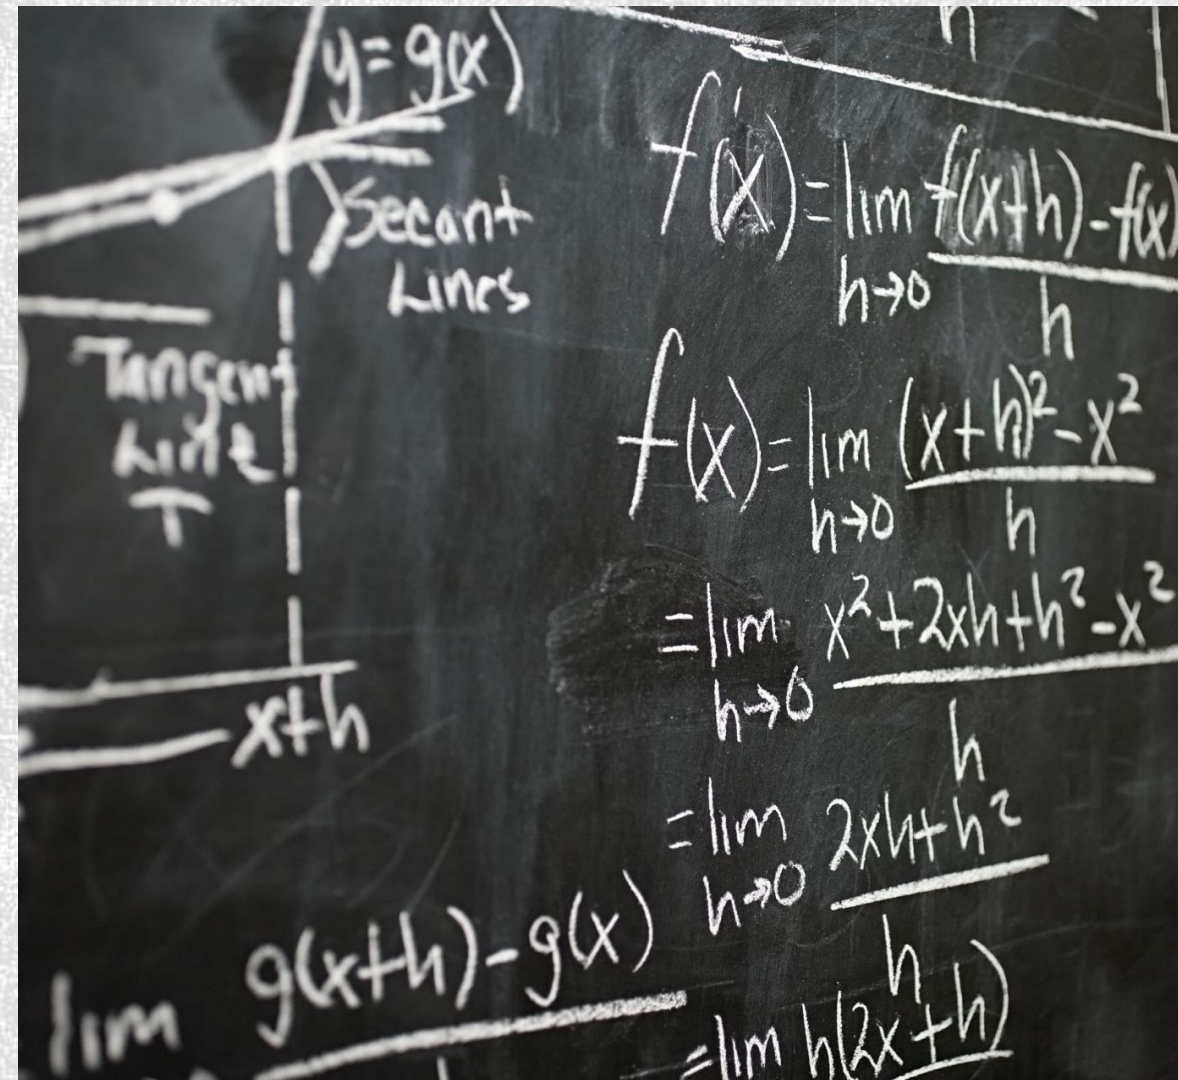 y=g(x)
Secant
Lines
Tangent
Line
T
x+h
lim g(x+h)-g(x)
h
f'(x)=lim f(x+h)-f(x)
h→0 h
f(x)=lim (x+h)²-x²
h→0 h
=lim x²+2xh+h²-x²
h→0 h
=lim 2xh+h²
h→0 h
=lim h(2x+h)